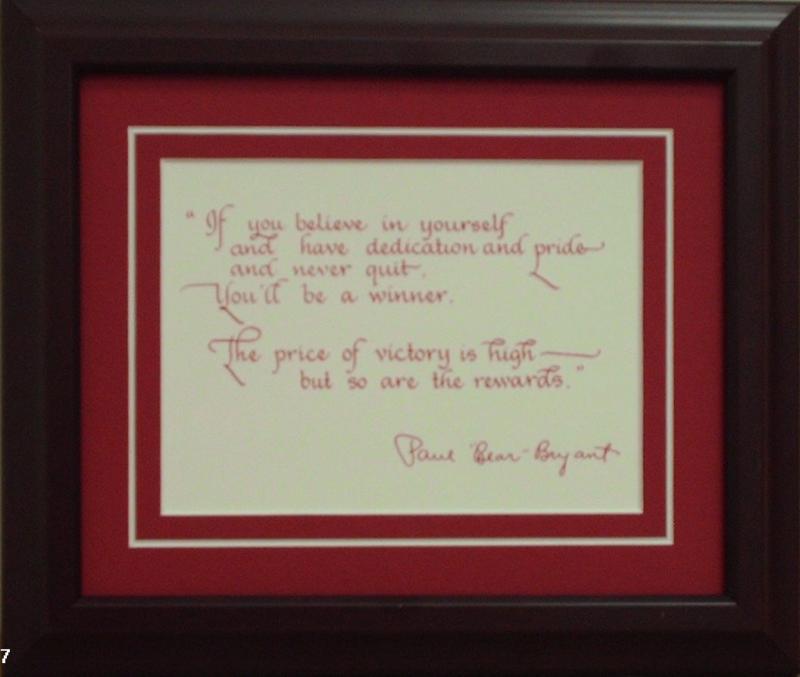 “If you believe in yourself
and have dedication and pride
and never quit.
You'll be a winner.
The price of victory is high—
but so are the rewards.”
Paul "Bear" Bryant
7